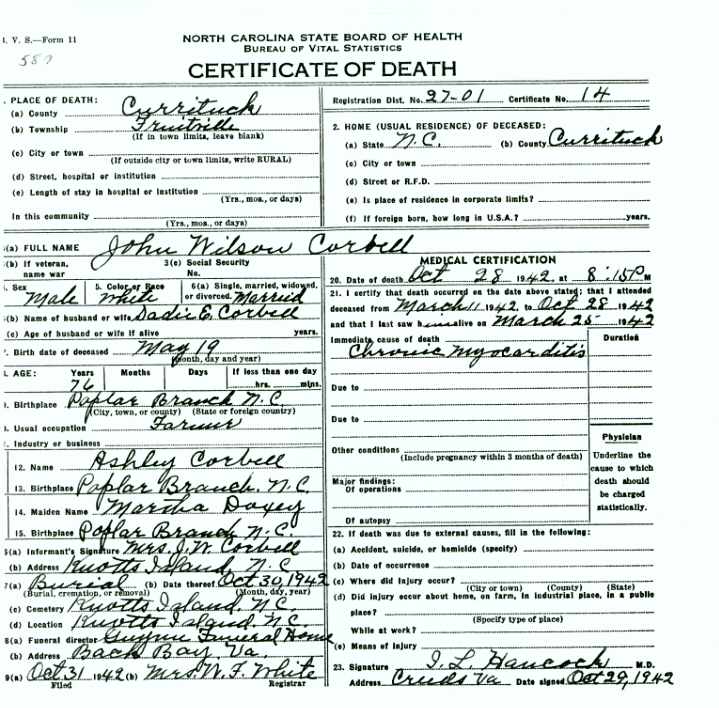 V. S.—Form 11
NORTH CAROLINA STATE BOARD OF HEALTH
BUREAU OF VITAL STATISTICS
CERTIFICATE OF DEATH
PLACE OF DEATH:
(a) County Currituck
(b) Township Fruitville
(If in town limits, leave blank)
(c) City or town
(If outside city or town limits, write RURAL)
(d) Street, hospital or institution
(e) Length of stay in hospital or institution
(Yrs., mos., or days)
In this community
(Yrs., mos., or days)
Registration Dist. No. 27-01 Certificate No. 14
2. HOME (USUAL RESIDENCE) OF DECEASED:
(a) State N.C. (b) County Currituck
(c) City or town
(d) Street or R.F.D.
(e) Is place of residence in corporate limits?
(f) If foreign born, how long in U.S.A.? years.
(a) FULL NAME John Wilson Corbell
(b) If veteran, name war
3(c) Social Security No.
Sex Male
5. Color or Race White
6(a) Single, married, widowed, or divorced. Married
(b) Name of husband or wife Sadie E. Corbell
(c) Age of husband or wife if alive years.
Birth date of deceased May 19
(Month, day and year)
AGE: Years Months Days If less than one day
76 hrs. mins.
Birthplace Poplar Branch N.C.
(City, town, or county) (State or foreign country)
Usual occupation Farmer
Industry or business
12. Name Ashley Corbell
13. Birthplace Poplar Branch. N.C.
14. Maiden Name Martha Doxey
15. Birthplace Poplar Branch N.C.
(a) Informant's Signature Mrs. J. W. Corbell
(b) Address Knotts Island, N.C.
(a) Burial (b) Date thereof Oct 30, 1942
(Burial, cremation, or removal) (Month, day, year)
(c) Cemetery Knotts Island. N.C.
(d) Location Knotts Island. N.C.
(a) Funeral director Funeral Home
(b) Address Back Bay, Va.
(a) Oct 31 1942 (b) Mrs. W. F. White
Filed Registrar
MEDICAL CERTIFICATION
20. Date of death Oct 28 1942, at 8:15 P M
21. I certify that death occurred on the date above stated; that I attended
deceased from March 11 1942 to Oct 28 1942
and that I last saw him alive on March 25 1942
Immediate cause of death Duration
Chronic Myocarditis
Due to
Due to
Other conditions
(Include pregnancy within 3 months of death)
Major findings:
Of operations
Of autopsy
Physician
Underline the cause to which death should be charged statistically.
22. If death was due to external causes, fill in the following:
(a) Accident, suicide, or homicide (specify)
(b) Date of occurrence
(c) Where did injury occur?
(City or town) (County) (State)
(d) Did injury occur about home, on farm, in industrial place, in a public
place?
(Specify type of place)
While at work?
(e) Means of injury
23. Signature I. L. Hancock M.D.
Address Creeds Va Date signed Oct 29, 1942